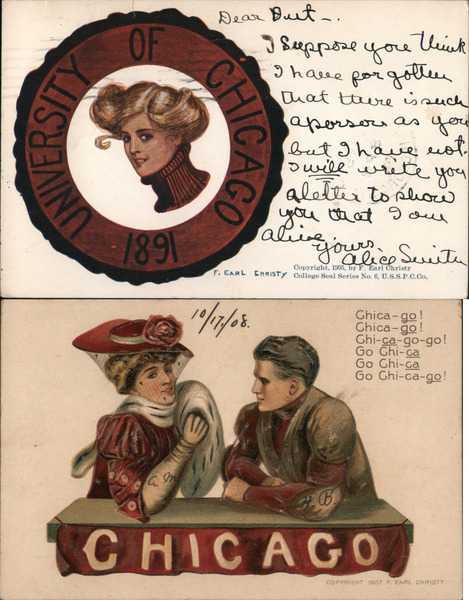 Dear Dut—.
UNIVERSITY OF CHICAGO
1891
I suppose you think
I have forgotten
that there is such
a person as you
but I have not.
I will write you
a letter to show
you that I am
alive
yours
Alice Smith
F. EARL CHRISTY
Copyright, 1905, by F. Earl Christy
College Seal Series No. 6, U.S.S.P.C.Co.
10/17/08.
Chica-go!
Chica-go!
Chi-ca-go-go!
Go Chi-ca
Go Chi-ca
Go Chi-ca-go!
B.
CHICAGO
COPYRIGHT 1907 F. EARL CHRISTY